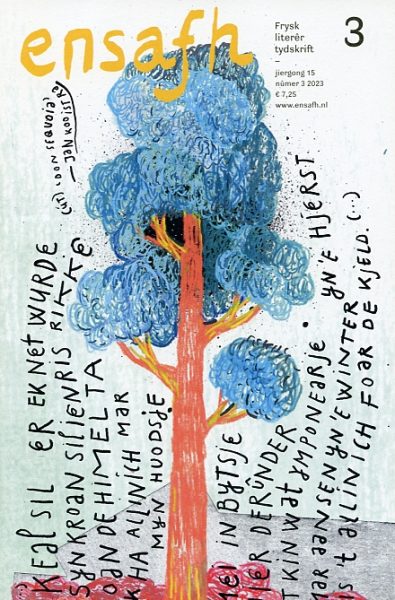 ensafh
Frysk
literêr
tydskrift
–
jiergong 15
nûmer 3 2023
€ 7,25
www.ensafh.nl
3
(út) LOON SEQUOIA
— JAN KOOISTRA
KEAL SIL ER EK NET WURDE
SYN KROAN SIL IENRIS RIKKE
OAN DE HIMEL TA
K HA ALLINICH MAR
MYN HUODSJE
MEI IN BYTSJE
IER DERÛNDER
T KIN WAT YMPONEARJE · YN'E HJERST
MAR AANSEN YN'E WINTER
IS 'T ALLINICH FOAR DE KJELD. (...)